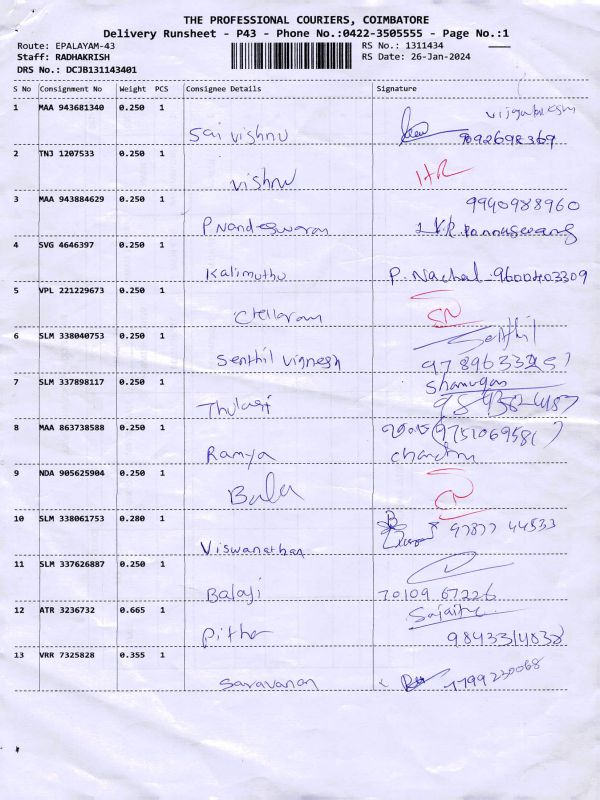 THE PROFESSIONAL COURIERS, COIMBATORE
Delivery Runsheet - P43 - Phone No.:0422-3505555 - Page No.:1
Route: EPALAYAM-43 RS No.: 1311434
Staff: RADHAKRISH RS Date: 26-Jan-2024
DRS No.: DCJB131143401
S No Consignment No Weight PCS Consignee Details Signature
1 MAA 943681340 0.250 1
Sai vishnu
2 TNJ 1207533 0.250 1
vishnu
3 MAA 943884629 0.250 1 9940988960
4 SVG 4646397 0.250 1
Kalimuthu P. Nachal - 9600403309
5 VPL 221229673 0.250 1
Chellaram
6 SLM 338040753 0.250 1 Senthil
Senthil vignesh
7 SLM 337898117 0.250 1
Thulasi
8 MAA 863738588 0.250 1 (9751069581)
Ramya Chandru
9 NDA 905625904 0.250 1
Bala
10 SLM 338061753 0.280 1 97877 44533
Viswanathan
11 SLM 337626887 0.250 1
Balaji 70109 67226
12 ATR 3236732 0.665 1
13 VRR 7325828 0.355 1
Saravanan